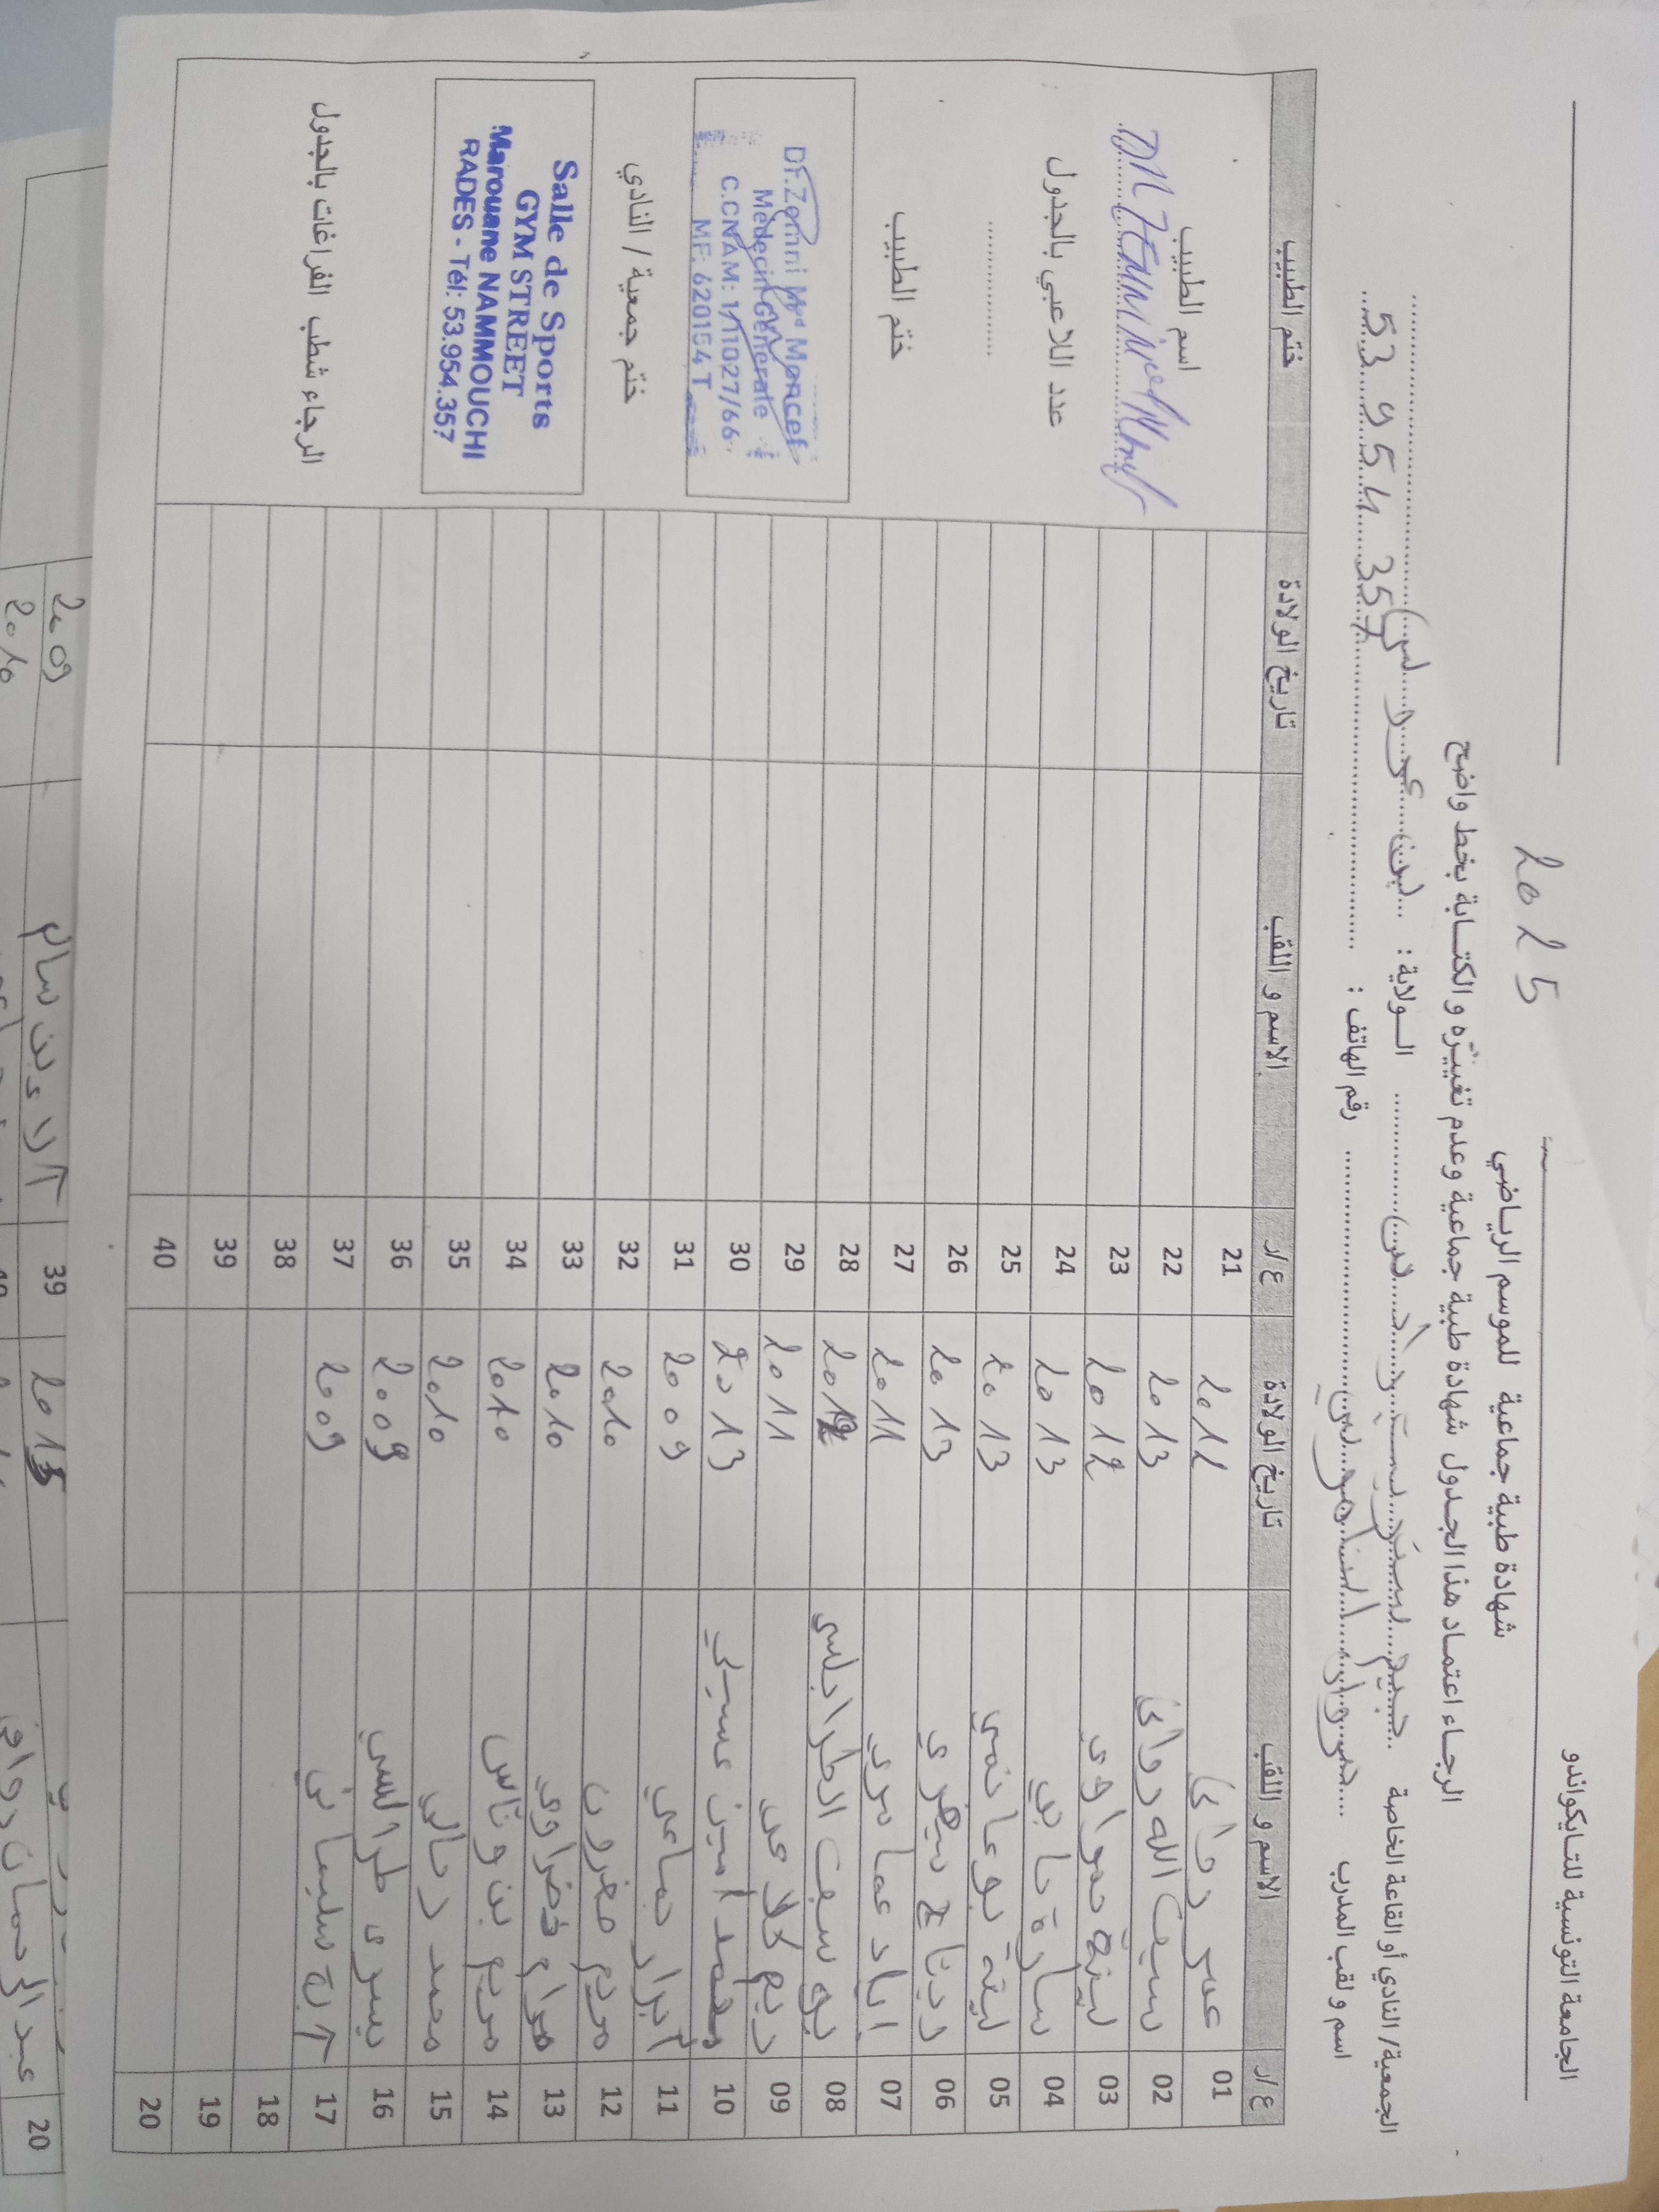 الجامعة التونسية للتايكواندو
2025
شهادة طبية جماعية للموسم الرياضي
الرجاء اعتماد هذا الجدول شهادة طبية جماعية وعدم تغييره والكتابة بخط واضح
الجمعية/ النادي أو القاعة الخاصة جيم ستريت رادس الولاية : بن عروس
اسم و لقب المدرب مروان النموشي رقم الهاتف : 53 954 357
ع/ر الاسم و اللقب تاريخ الولادة ع/ر الاسم و اللقب تاريخ الولادة ختم الطبيب
01 عمر 2012 21
02 سيف الله 2013 22
03 لينة حمراوي 2012 23
04 سارة 2013 24
05 لينة بوعا نمي 2013 25
06 ريتاج 2013 26
07 اياد عمامري 2011 27
08 يوسف الطرابلسي 2012 28
09 ريم 2011 29
10 محمد امين عسيلي 2013 30
11 أبرار جماعي 2009 31
12 مريم مغزون 2010 32
13 مرام خضراوي 2010 33
14 مريم بن وناس 2010 34
15 محمد رحالي 2010 35
16 يسرى طرابلسي 2009 36
17 سليماني 2009 37
18 38
19 39
20 40
اسم الطبيب
عدد اللاعبي بالجدول
ختم الطبيب
Dr.Zemni Med Moncef
Médecin Générale
C.CNAM: 1/11027/66
MF: 620154T
ختم جمعية / النادي
Salle de Sports
GYM STREET
Marouane NAMMOUCHI
RADES - Tél: 53.954.357
الرجاء شطب الفراغات بالجدول
39 2013
20
آلاء بن سالم 2009
2010